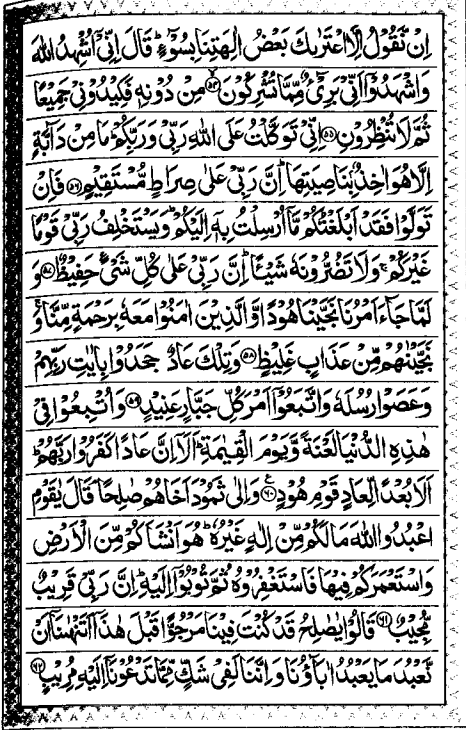 اِنْ نَّقُوْلُ اِلَّا اعْتَرٰىكَ بَعْضُ اٰلِهَتِنَا بِسُوْٓءٍ ؕ قَالَ اِنِّيْٓ اُشْهِدُ اللّٰهَ
وَاشْهَدُوْٓا اَنِّيْ بَرِيْٓءٌ مِّمَّا تُشْرِكُوْنَ ﴿۵۴﴾ مِنْ دُوْنِهٖ فَكِيْدُوْنِيْ جَمِيْعًا
ثُمَّ لَا تُنْظِرُوْنِ ﴿۵۵﴾ اِنِّيْ تَوَكَّلْتُ عَلَى اللّٰهِ رَبِّيْ وَرَبِّكُمْ ؕ مَا مِنْ دَآبَّةٍ
اِلَّا هُوَ اٰخِذٌۢ بِنَاصِيَتِهَا ؕ اِنَّ رَبِّيْ عَلٰى صِرَاطٍ مُّسْتَقِيْمٍ ﴿۵۶﴾ فَاِنْ
تَوَلَّوْا فَقَدْ اَبْلَغْتُكُمْ مَّآ اُرْسِلْتُ بِهٖٓ اِلَيْكُمْ ؕ وَيَسْتَخْلِفُ رَبِّيْ قَوْمًا
غَيْرَكُمْ ۚ وَلَا تَضُرُّوْنَهٗ شَيْـًٔا ؕ اِنَّ رَبِّيْ عَلٰى كُلِّ شَيْءٍ حَفِيْظٌ ﴿۵۷﴾ وَ
لَمَّا جَآءَ اَمْرُنَا نَجَّيْنَا هُوْدًا وَّالَّذِيْنَ اٰمَنُوْا مَعَهٗ بِرَحْمَةٍ مِّنَّا ۚ وَ
نَجَّيْنٰهُمْ مِّنْ عَذَابٍ غَلِيْظٍ ﴿۵۸﴾ وَتِلْكَ عَادٌ ۙ جَحَدُوْا بِاٰيٰتِ رَبِّهِمْ
وَعَصَوْا رُسُلَهٗ وَاتَّبَعُوْٓا اَمْرَ كُلِّ جَبَّارٍ عَنِيْدٍ ﴿۵۹﴾ وَاُتْبِعُوْا فِيْ
هٰذِهِ الدُّنْيَا لَعْنَةً وَّيَوْمَ الْقِيٰمَةِ ؕ اَلَآ اِنَّ عَادًا كَفَرُوْا رَبَّهُمْ ؕ
اَلَا بُعْدًا لِّعَادٍ قَوْمِ هُوْدٍ ﴿۶۰﴾ وَاِلٰى ثَمُوْدَ اَخَاهُمْ صٰلِحًا ۘ قَالَ يٰقَوْمِ
اعْبُدُوا اللّٰهَ مَا لَكُمْ مِّنْ اِلٰهٍ غَيْرُهٗ ؕ هُوَ اَنْشَاَكُمْ مِّنَ الْاَرْضِ
وَاسْتَعْمَرَكُمْ فِيْهَا فَاسْتَغْفِرُوْهُ ثُمَّ تُوْبُوْٓا اِلَيْهِ ؕ اِنَّ رَبِّيْ قَرِيْبٌ
مُّجِيْبٌ ﴿۶۱﴾ قَالُوْا يٰصٰلِحُ قَدْ كُنْتَ فِيْنَا مَرْجُوًّا قَبْلَ هٰذَآ اَتَنْهٰىنَآ اَنْ
نَّعْبُدَ مَا يَعْبُدُ اٰبَآؤُنَا وَاِنَّنَا لَفِيْ شَكٍّ مِّمَّا تَدْعُوْنَآ اِلَيْهِ مُرِيْبٍ ﴿۶۲﴾